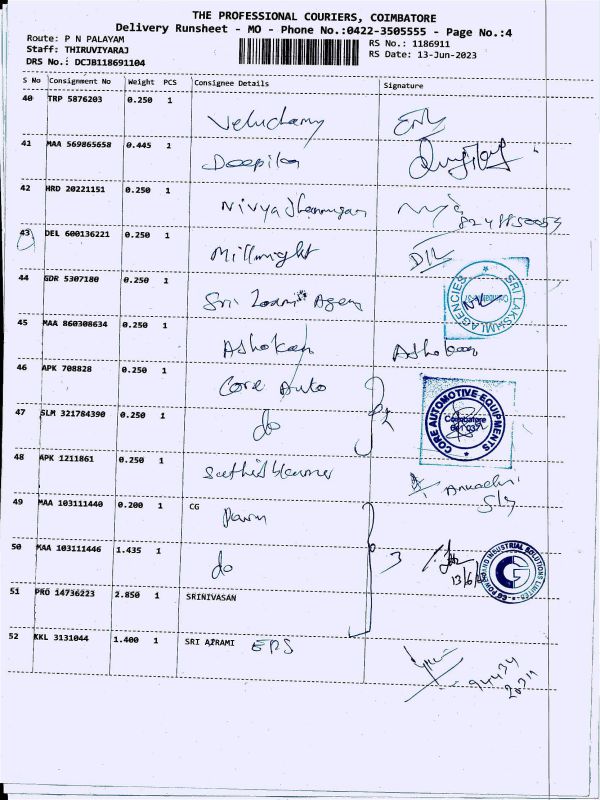 THE PROFESSIONAL COURIERS, COIMBATORE
Delivery Runsheet - MO - Phone No.:0422-3505555 - Page No.:4
Route: P N PALAYAM
RS No.: 1186911
Staff: THIRUVIYARAJ
RS Date: 13-Jun-2023
DRS No.: DCJB118691104
S No Consignment No Weight PCS Consignee Details Signature
40 TRP 5876203 0.250 1
Veluchamy
41 MAA 569865658 0.445 1
Deepika
42 HRD 20221151 0.250 1
43 DEL 600136221 0.250 1
Millwright
44 GDR 5307180 0.250 1
Sri Agen
SRI LAKSHMI AGENCIES
45 MAA 860308634 0.250 1
Ashokan Ashokan
46 APK 708828 0.250 1
Core Auto
CORE AUTOMOTIVE EQUIPMENTS
Coimbatore
47 SLM 321784390 0.250 1
do
48 APK 1211861 0.250 1
49 MAA 103111440 0.200 1 CG
50 MAA 103111446 1.435 1
do 3
13/6/
INDUSTRIAL SOLUTIONS LIMITED
51 PRO 14736223 2.850 1 SRINIVASAN
52 KKL 3131044 1.400 1 SRI
94434